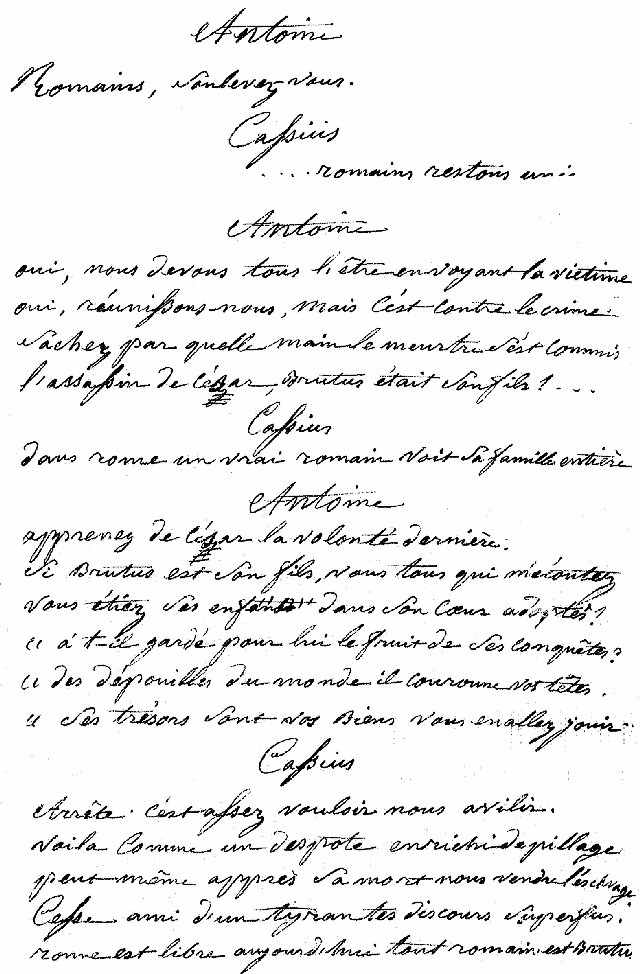 Antoine
Romains, soulevez vous.
Cassius
....romains restons unis
Antoine
oui, nous devons tous l'être en voyant la victime
oui, réunissons-nous, mais c'est contre le crime.
Sachez par quelle main le meurtre s'est commis
l'assassin de César, Brutus était son fils! ...
Cassius
dans rome un vrai romain voit sa famille entière
Antoine
apprenez de César la volonté dernière.
Si Brutus est son fils, vous tous qui m'écoutez
vous étiez ses enfants dans son cœur adoptés!
" a t-il gardé pour lui le fruit de ses conquêtes?
" des dépouilles du monde il couronne vos têtes.
" Ses trésors sont vos Biens vous en allez jouir
Cassius
Arrête. c'est assez vouloir nous avilir.
Voila Comme un despote enrichi de pillage
peut même apprès sa mort nous vendre l'esclavage
Cesse ami d'un tyran tes discours superflus.
rome est libre aujourd'hui tout romain est Brutus